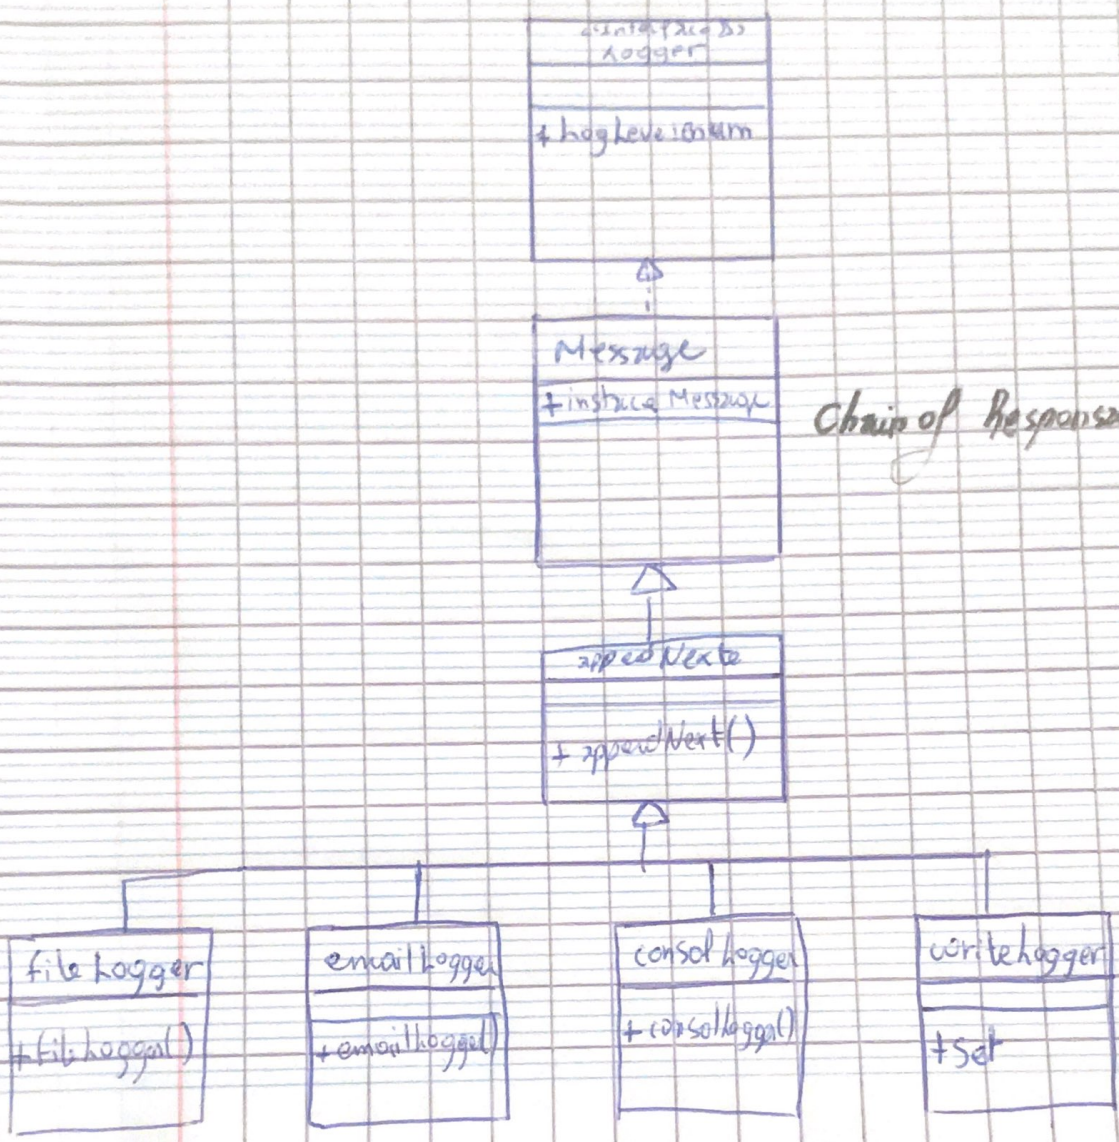 <<interface>>
Logger
+ LogLevel:Enum
Message
+ instace Message
Chain of Responsa
appedNexte
+ appendNext()
fileLogger
emailLogger
consolLogger
writeLogger
+ fileLogger()
+ emailLogger()
+ consolLogger()
+ Set